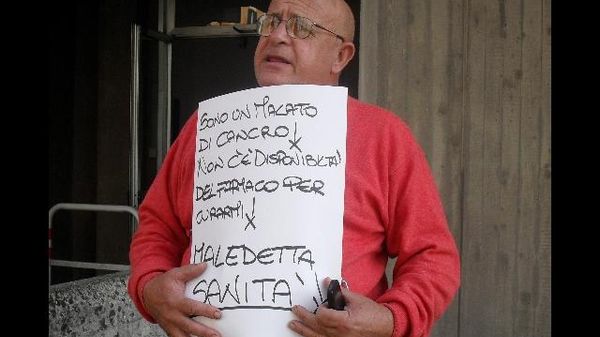 SONO UN MALATO
DI CANCRO!
NON C'È DISPONIBILTÀ
DEL FARMACO PER
CURARMI!
MALEDETTA
SANITÀ!